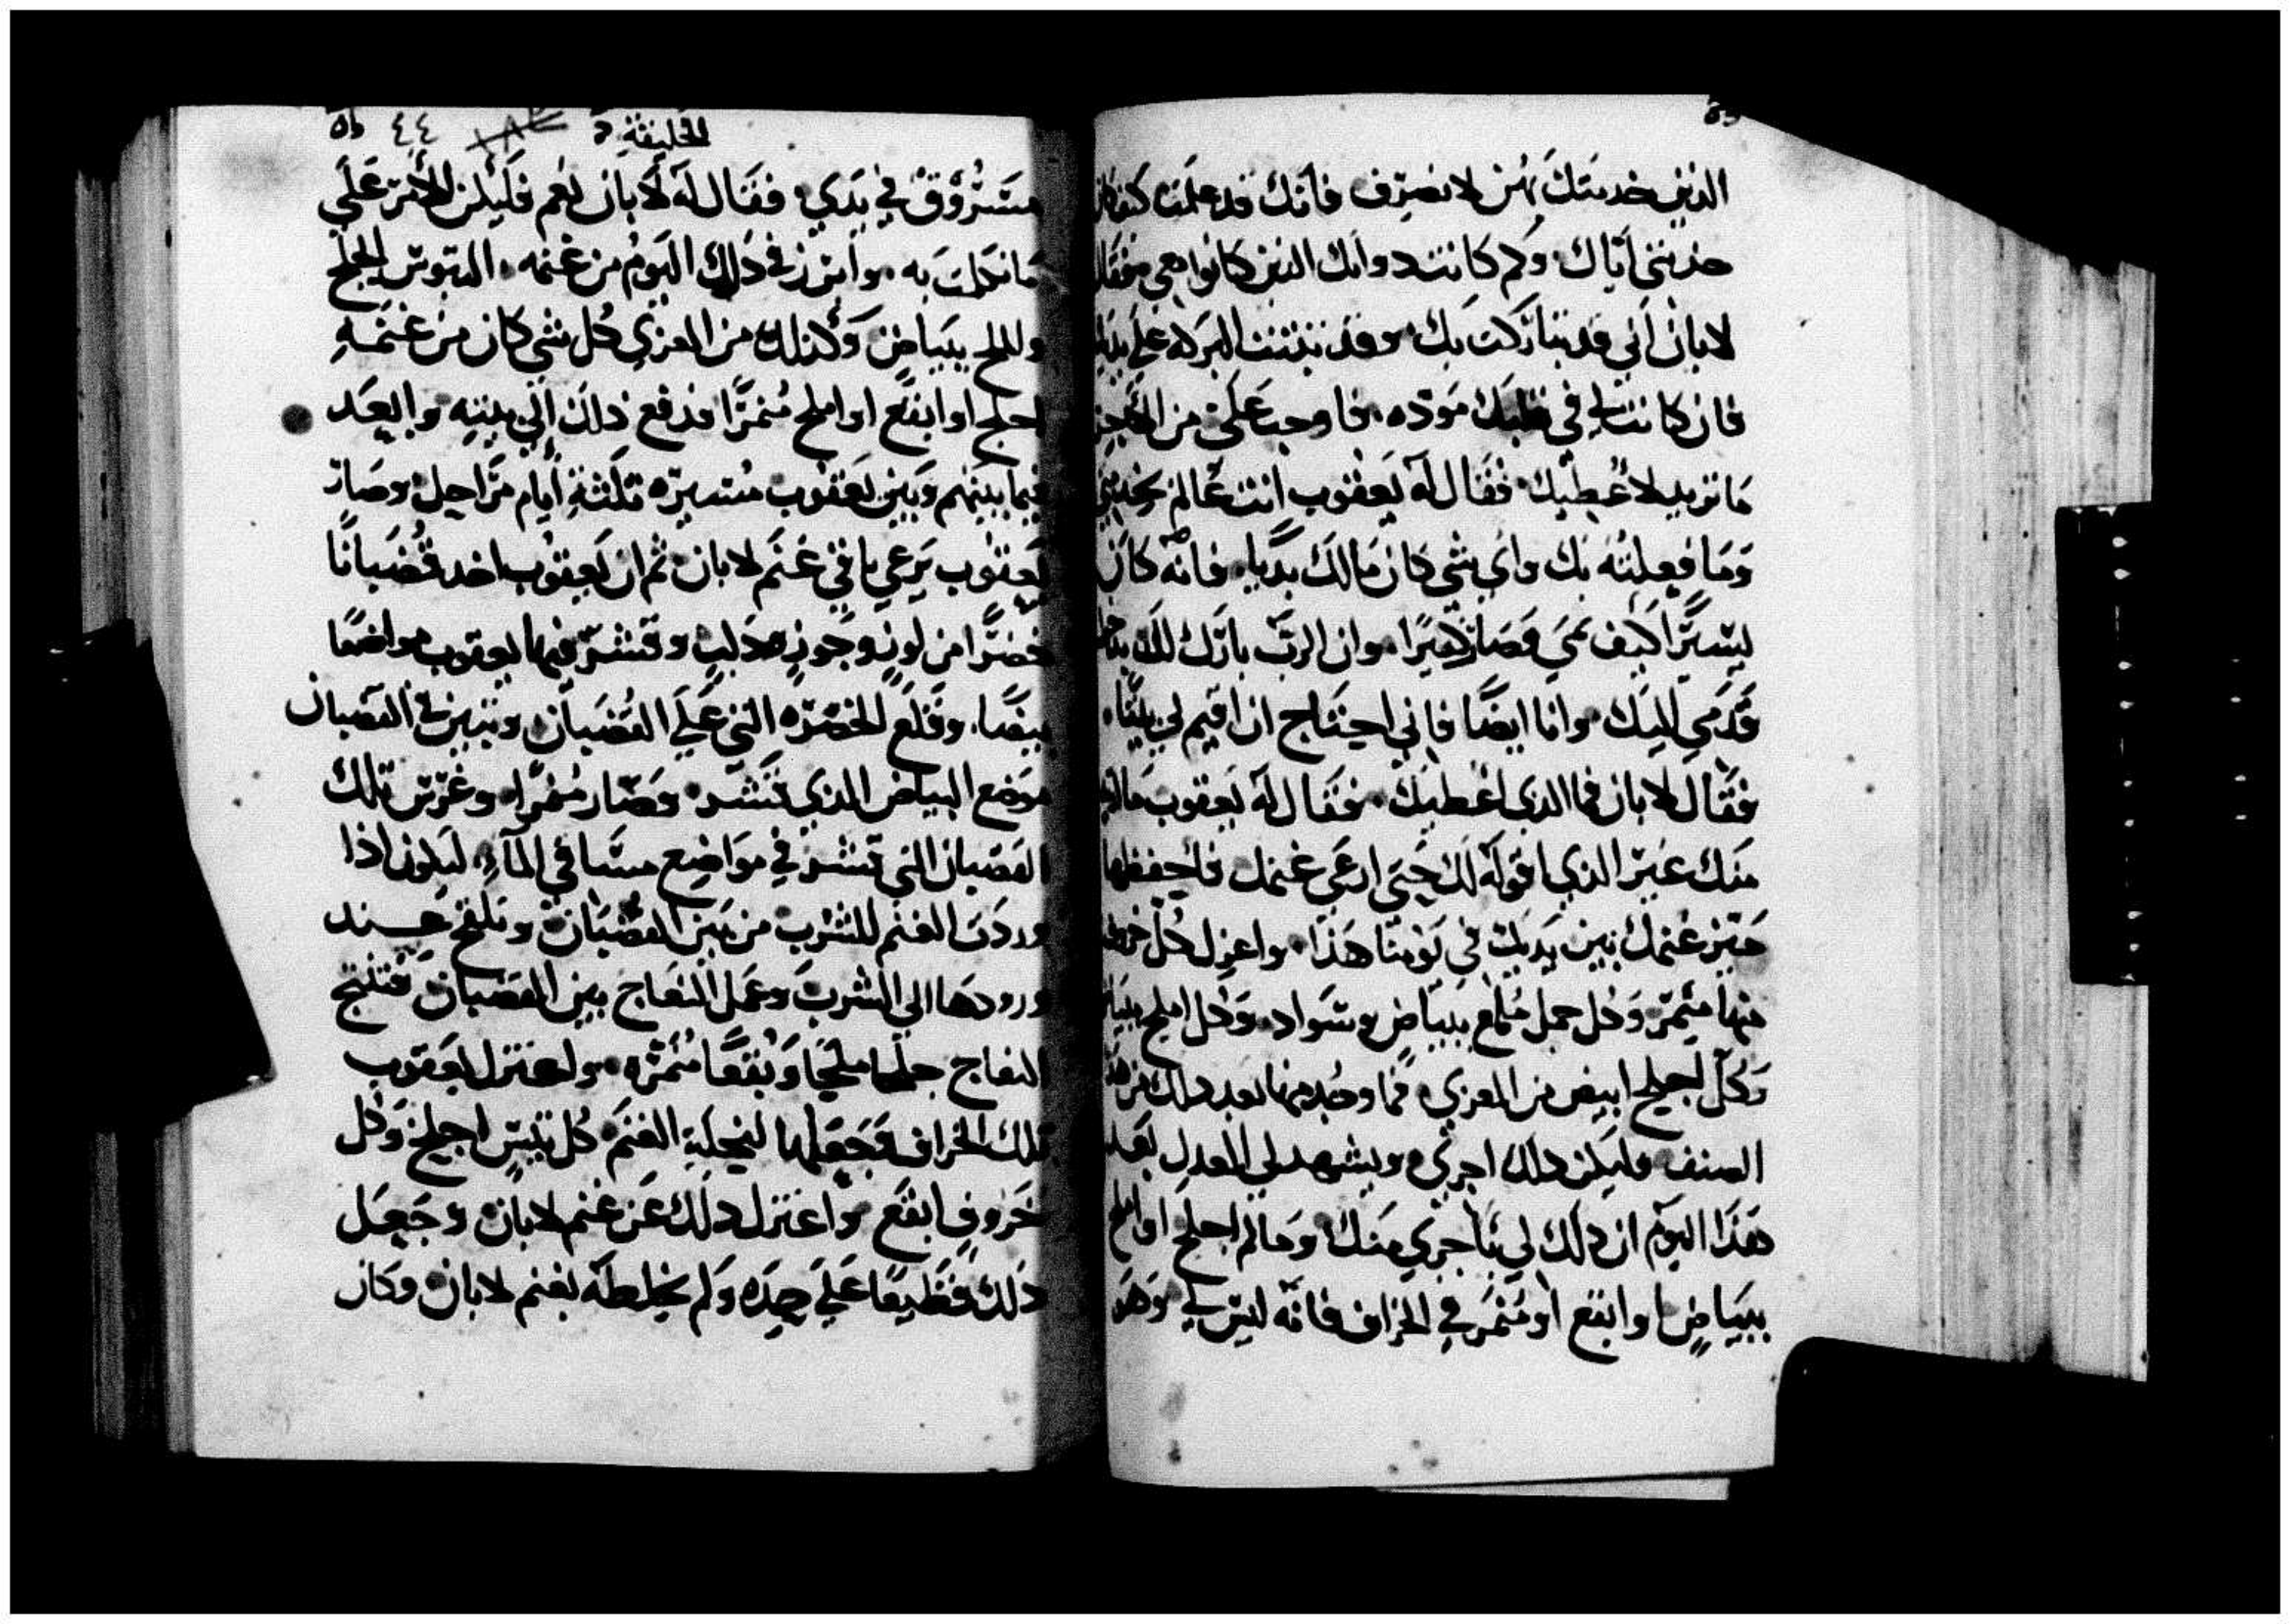 الذين خدمتك بهن لانصرف فانك قد علمت كيف كان
خدمتي اياك وكم كانت دوابك الذين كانوا معي فقال
لابان اني قد تباركت بك وقد تبينت البركة علي يديك
فان كانت لي في قلبك موده فاوجب علي من الاجر
ما تريد لاعطيك فقال له يعقوب انت عالم بخدمتي
وما فعلته بك واي شي كان مالك بديا فانه كان
يسيرًا كيف نمي وصار كثيرًا وان الرب بارك لك
قدمي اليك وانا ايضًا فاني احتاج ان اقيم لي بيتًا
فقال لابان فما الذي اعطيك فقال له يعقوب مالي
منك غير الذي اقوله لك حتي ارعي غنمك فاحفظها
ميز غنمك بين يديك في يومنا هذا واعزل كل خروف
منها منمر وكل حمل ملمع ببياض وسواد وكل املح ببياض
وكل اجلح ابيض من المعزي فما وجد منها بعد ذلك من هذا
الصنف وليكن ذلك اجري ويشهد لي العدل بعد
هذا اليوم ان ذلك لي باجري منك وما لم اجلح او املح
ببياض او ابقع او منمر في الخراف فانه ليس لي وهو
الخليقة ٤٤
مسروق في يدي فقال له لابان نعم فليكن الامر علي
ما تكلمت به وامرز في ذلك اليوم من غنمه التيوس الجلح
والملح ببياض وكذلك من المعزي كل شي كان من غنمه
اجلح او ابقع او املح منمرًا فدفع ذلك الي بنيه وابعد
فيما بينهم وبين يعقوب مسيرة ثلثة ايام مراحل وصار
يعقوب يرعي باقي غنم لابان ثم ان يعقوب اخد قضبانًا
خضرًا من لوز وجوز ودلب وقشر فيها يعقوب مواضعًا
بيضًا وقلع الخضره التي علي القضبان وتبين في القضبان
موضع البياض الذي قشر وصار منمرًا وغرس تلك
القضبان التي قشر في مواضع مساقي المآء ليكون اذا
وردت الغنم للشرب من بين القضبان وتلقح عند
ورودها الي الشرب وعمل النعاج بين القضبان فتنتج
النعاج جلحا ملحًا وبقعًا منمره واعتزل يعقوب
تلك الخراف وجعلها لنحلة الغنم كل تيس اجلح وكل
خروف ابقع واعتزل ذلك عن غنم لابان وجعل
ذلك قطيعًا علي حده ولم يخلطه بغنم لابان وكان